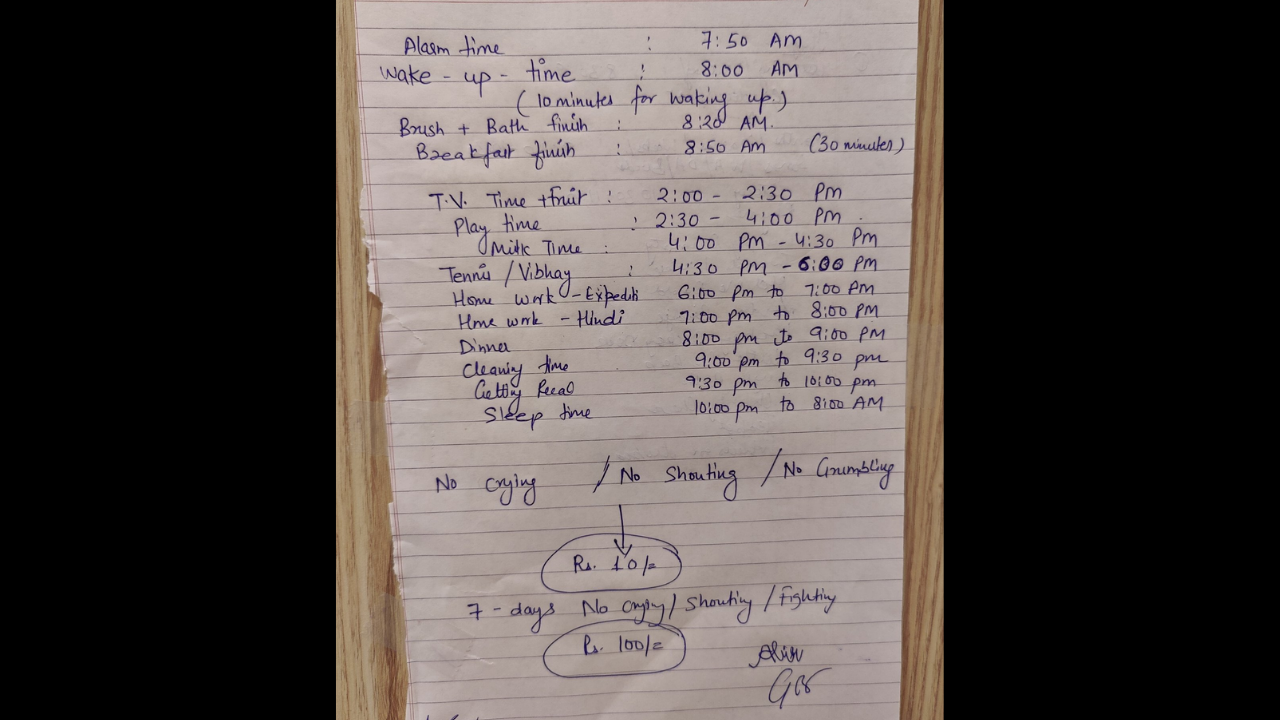 Alarm time : 7:50 AM
Wake - up - time : 8:00 AM
(10 minutes for waking up.)
Brush + Bath finish : 8:20 AM.
Breakfast finish : 8:50 AM (30 minutes)
T.V. Time + fruit : 2:00 - 2:30 PM
Play time : 2:30 - 4:00 PM.
Milk Time : 4:00 PM - 4:30 PM
Tennis / Vibhay : 4:30 PM - 6:00 PM
Home work - 6:00 Pm to 7:00 PM
Home work - Hindi 7:00 pm to 8:00 PM
Dinner 8:00 pm to 9:00 PM
Cleaning time 9:00 pm to 9:30 pm
Getting 9:30 pm to 10:00 pm
Sleep time 10:00 pm to 8:00 AM
No crying / No Shouting / No Grumbling
Rs. 10/=
7 - days No crying / Shouting / Fighting
Rs. 100/=